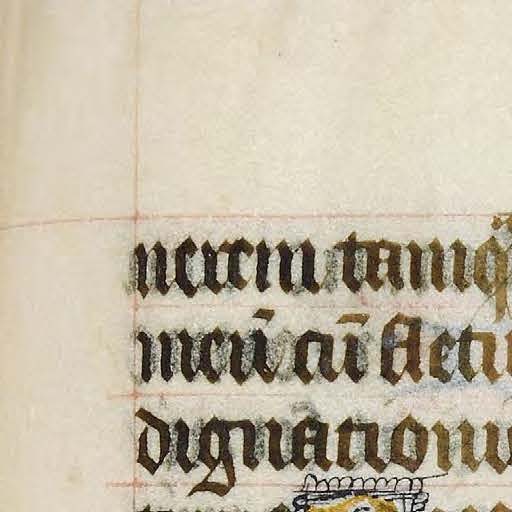 nerem tamq̄
meū cū fletu
dignationi